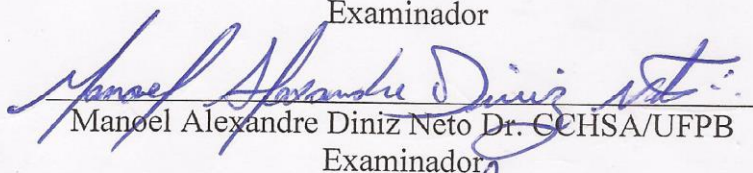 Examinador
Manoel Alexandre Diniz Neto
Manoel Alexandre Diniz Neto Dr. CCHSA/UFPB
Examinador